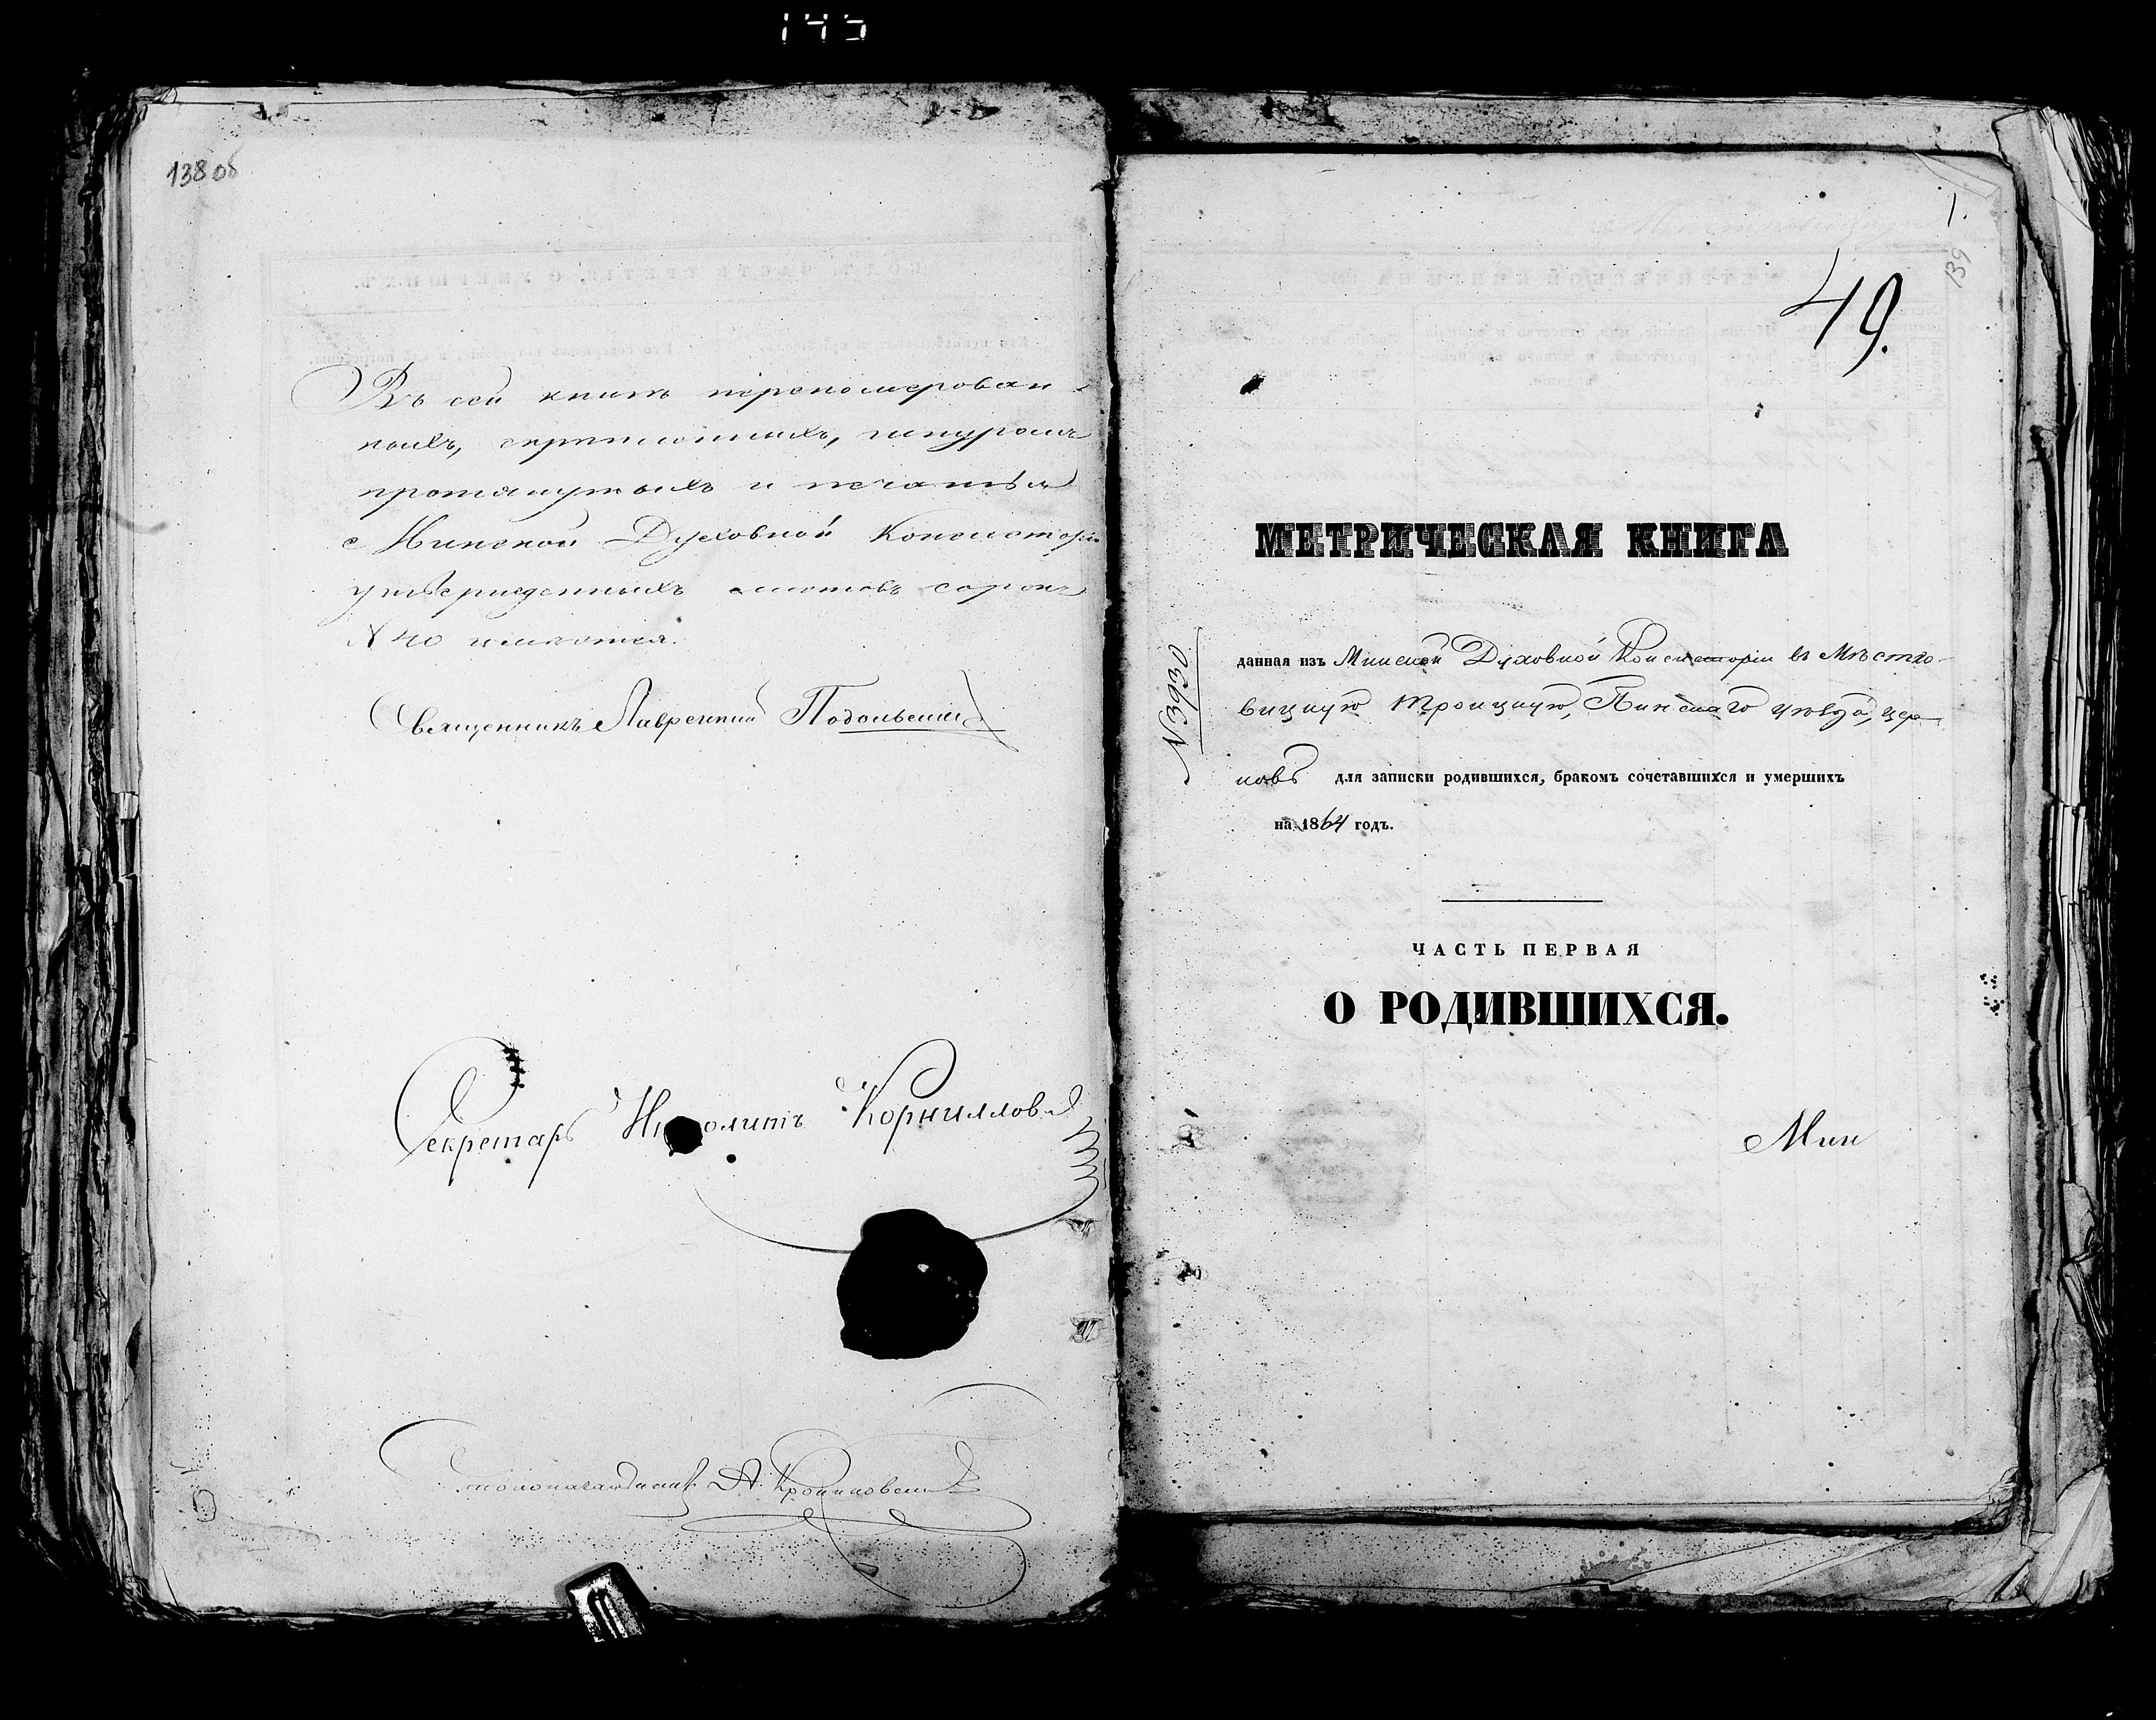 145
138 об
Въ сей книгѣ перепомерован-
ныхъ, скрѣпленныхъ, шнуромъ
протянутыхъ и печатью
Минской Духовной Консисторіи
утвержденныхъ листовъ сорокъ
№ 40 имѣется.
Священникъ Лаврентий Подольский
Секретарь Ипполитъ Корниловъ
Столоначальникъ А.
1.
139
49.
МЕТРИЧЕСКАЯ КНИГА
№ 3930
данная изъ Минской Духовной Консисторіи въ Мѣстко-
вицкую Троицкую, Пинскаго уѣзда, цер-
ковь для записки родившихся, бракомъ сочетавшихся и умершихъ
на 1864 годъ.
ЧАСТЬ ПЕРВАЯ
О РОДИВШИХСЯ.
Мин